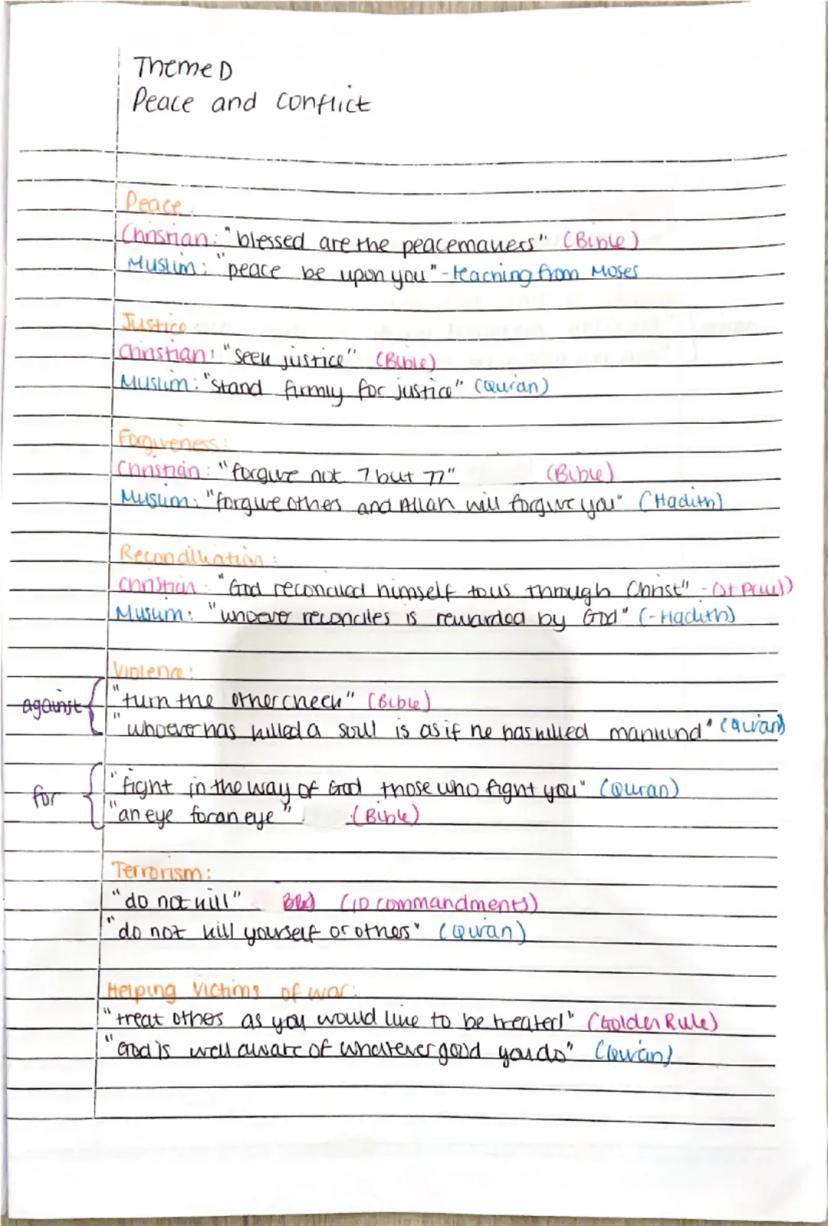 Theme D
Peace and Conflict
Peace
Christian: "blessed are the peacemakers" (Bible)
Muslim: "peace be upon you" - teaching from Moses
Justice
Christian: "seek justice" (Bible)
Muslim: "stand firmly for justice" (Quran)
Forgiveness:
Christian: "forgive not 7 but 77" (Bible)
Muslim: "forgive others and Allah will forgive you" (Hadith)
Reconciliation:
Christian: "God reconciled himself to us through Christ" - (St Paul)
Muslim: "whoever reconciles is rewarded by God" (-Hadith)
Violence:
against { "turn the other cheek" (Bible)
"whoever has killed a soul is as if he has killed mankind" (Quran)
for { "fight in the way of God those who fight you" (Quran)
"an eye for an eye" (Bible)
Terrorism:
"do not kill" (10 commandments)
"do not kill yourself or others" (Quran)
Helping victims of war:
"treat others as you would like to be treated" (Golden Rule)
"God is well aware of whatever good you do" (Quran)